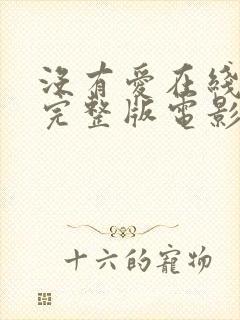 没有爱在线
完整版電影
十六的寵物